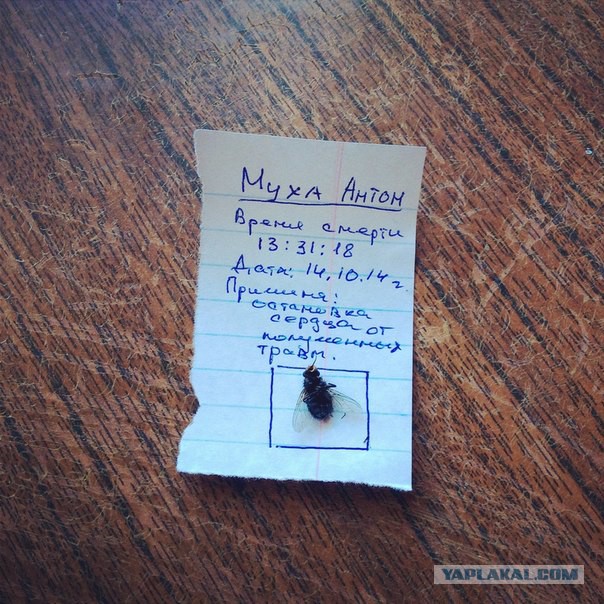 Муха Антон
Время смерти
13:31:18
Дата: 14.10.14г.
Причина:
остановка
сердца от
полученных
травм.
YAPLAKAL.COM